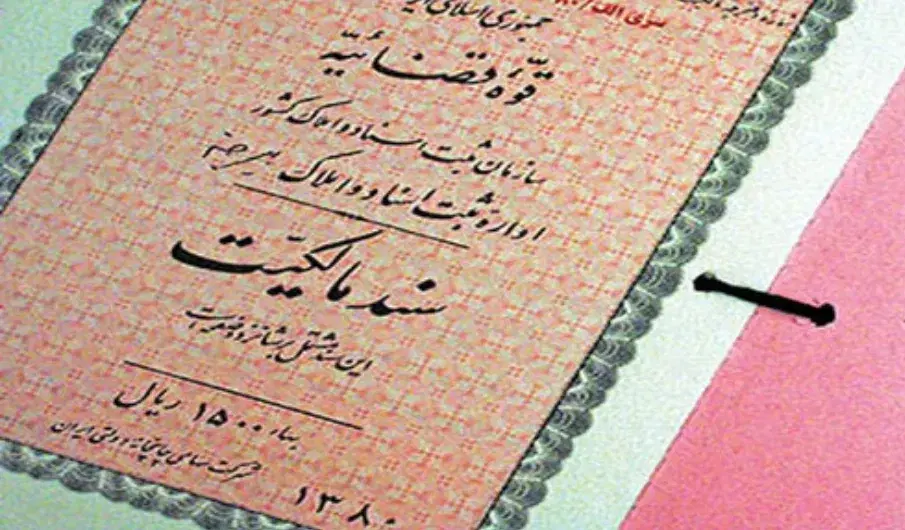 سری الف /۸۰
جمهوری اسلامی ایر
قوّهٔ قضائیّه
سازمان ثبت اسناد و املاک کشور
ادارهٔ ثبت اسناد و املاک بیرجند
سند مالکیّت
این سند مشتمل بر شانزده صفحه است
بهاء ۱۵۰۰ ریال
شرکت سهامی چاپخانه دولتی ایران
۱۳۸۰